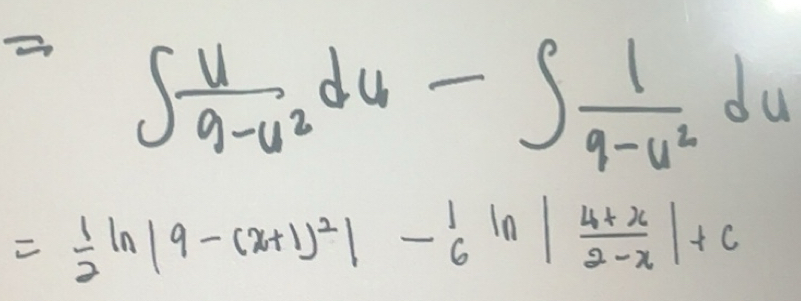 = ∫ u/(9-u²) du - ∫ 1/(9-u²) du
= 1/2 ln|9-(x+1)²| - 1/6 ln|(4+x)/(2-x)| + c